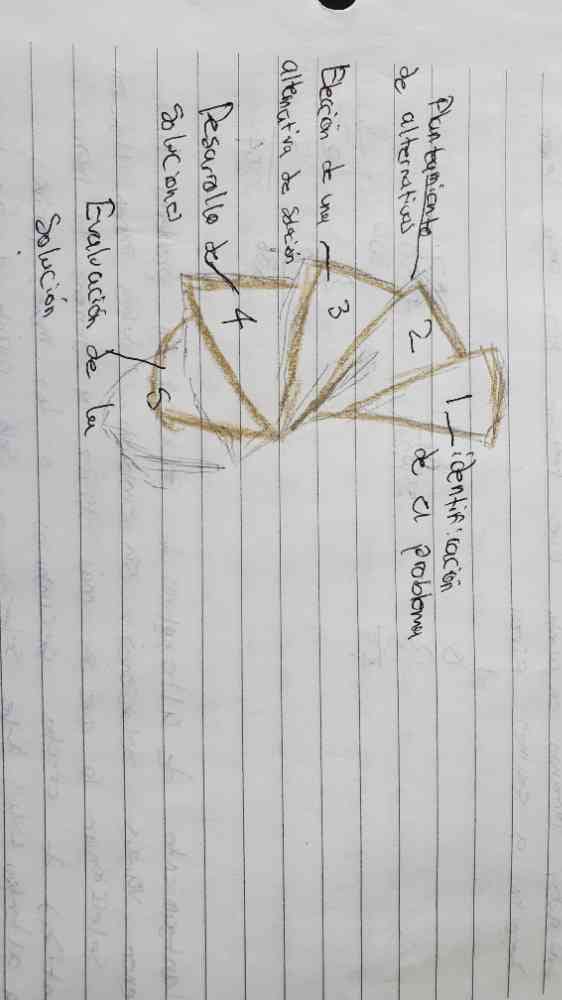 1
identificación
de el problema
2
Planteamiento
de alternativas
3
Elección de una
alternativa de solución
4
Desarrollo de
soluciones
5
Evaluación de la
Solución